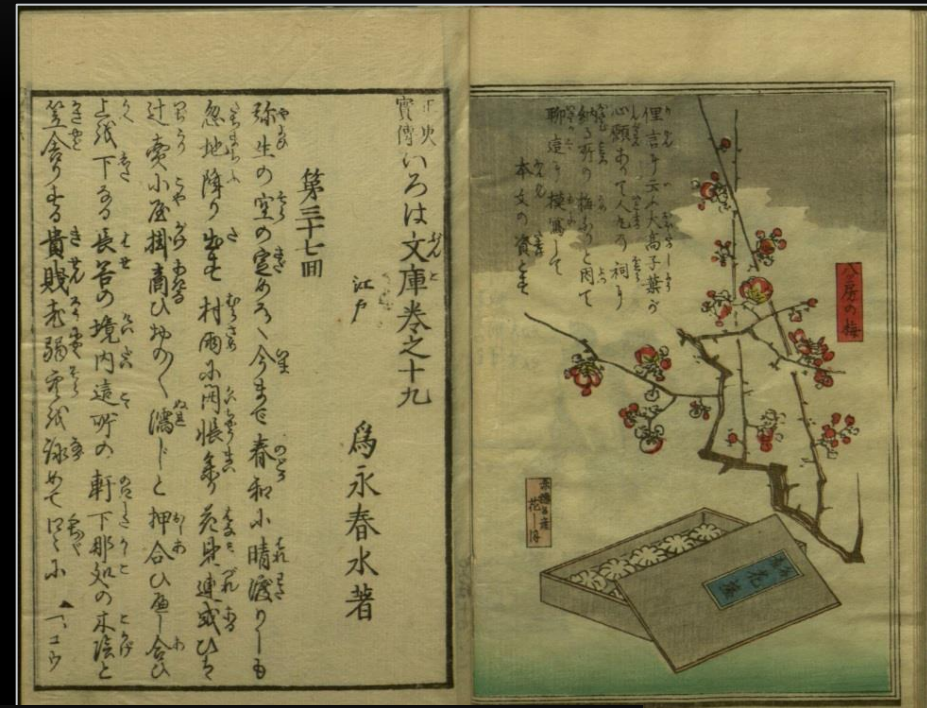 八房の梅
俚言に云ふ大高子葉が
心願ありて人丸の祠に
納る所の梅なりと因て
聊這に模写して
本文の資とす
正史
實傳いろは文庫巻之十九
江戸 為永春水著
第三十七回
弥生の空の定めなく今まで春和に晴渡りしも
忽地降り出す村雨に開帳参り花見連或ひは
辻賣小屋掛商ひ物のく濡じと押合ひ圧し合ひ
上を下なる長谷の境内這所の軒下那処の木陰と
笠舎りする貴賤老弱空を詠めて口々に